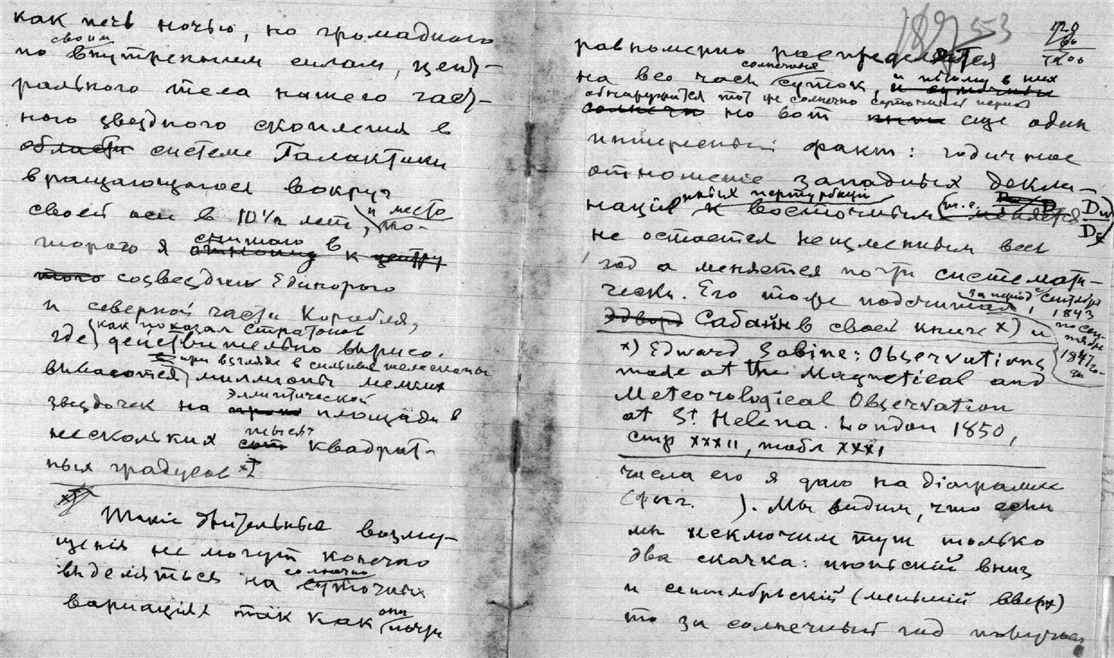 как печь ночью, но громадного
по своим внутренним силам, цент-
рального тела нашего част-
ного звездного скопления в
области системе Галактики
вращающагося вокруг
своей оси в 10½ лет, и место
ко-
тораго я снимаго в к центру
того созвездию Единорого
и северной части Корабля,
где, как показал Стратонов
действительно вырисо-
вываются, при взгляде в сильные телескопы
миллионы мелких
звездочек на эллиптической площади в
нескольких тысяч сот квадрат-
ных градусов x)
x)
Такие длительные возму-
щения не могут конечно
выделяться на солнечно суточных
вариациях так как они почти
189 553
720
60
7200
равномерно распределятся
на все часы солнечные суток, и поэтому в них
обнаружится тот же солнечно суточный период
солнечно но вот еще один
интересный факт: годичное
отношение западных декли-
наций к восточным (т.е. меняется Dw
De)
не остается неизменным весь
год а меняется почти системати-
чески. Его тоже подсчитал,
за период с Сентября 1843
по сен-
тябрь
1847 го-
да
Эдвард Сабайн в своей книге x) и
x) Edward Sabine: Observations
made at the Magnetical and
Meteorological Observation
at St Helena. London 1850,
стр XXXII, табл XXXI
числа его я даю на діаграмме
(рыс. ). Мы видим, что если
мы исключим тут только
два скачка: июньский вниз
и сентябрьский (меньший вверх)
то за солнечный год